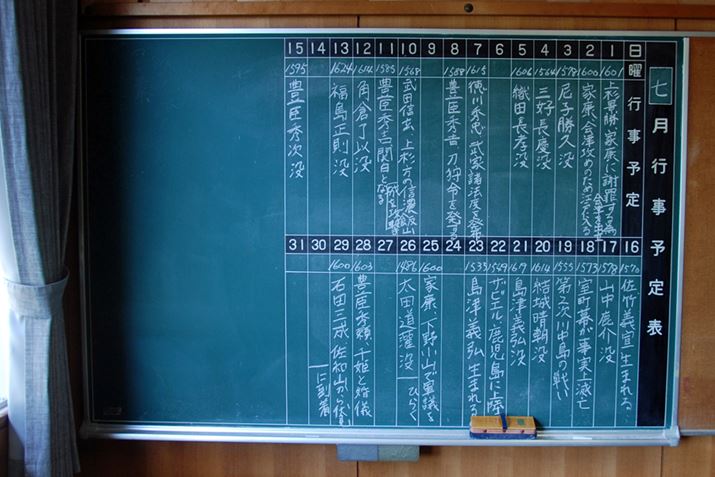 七月行事予定表
日 曜 行事予定
1 1601 上杉景勝、家康に謝罪する為会津を出立
2 1600 家康、会津攻めのため江戸に入る
3 1578 尼子勝久 没
4 1564 三好長慶没
5 1606 織田長孝没
6
7 1615 徳川秀忠 武家諸法度を発布
8 1588 豊臣秀吉 刀狩令を発する
9
10 1568 武田信玄 上杉方の信濃飯山城を攻撃
11 1585 豊臣秀吉関白となる
12 1614 角倉了以没
13 1624 福島正則没
14
15 1595 豊臣秀次 没
16 1570 佐竹義宣生まれる
17 1578 山中鹿介 没
18 1573 室町幕府事実上滅亡
19 1555 第2次川中島の戦い
20 1614 結城晴朝 没
21 1619 島津義弘没
22 1549 ザビエル鹿児島に上陸
23 1535 島津義弘生まれる
24
25 1600 家康、下野小山で軍議をひらく
26 1486 太田道灌没
27
28 1603 豊臣秀頼、千姫と婚儀
29 1600 石田三成 佐和山から に到着
30
31